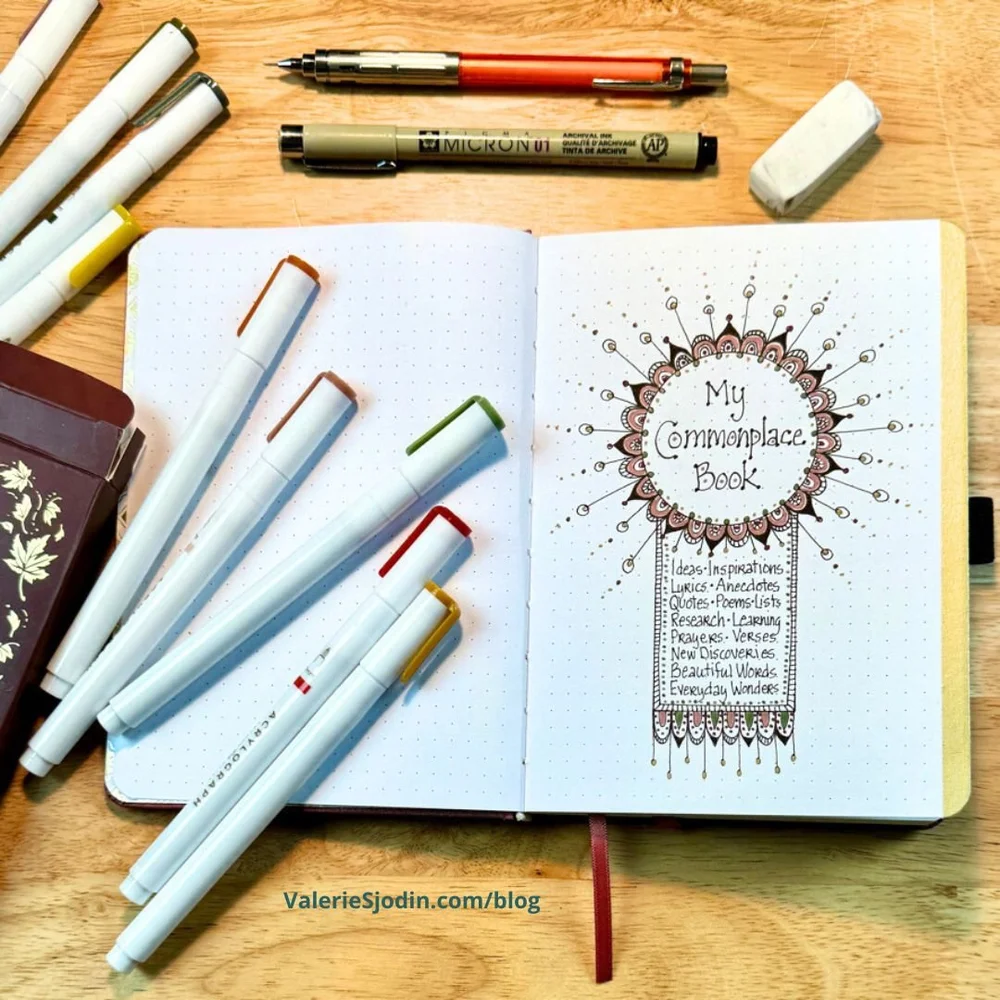 PIGMA
MICRON 01
ARCHIVAL INK
QUALITÉ D'ARCHIVAGE
TINTA DE ARCHIVE
AP
My
Commonplace
Book
Ideas · Inspirations
Lyrics · Anecdotes
Quotes · Poems · Lists
Research · Learning
Prayers · Verses
New Discoveries
Beautiful Words
Everyday Wonders
ACRYLOGRAPH
ValerieSjodin.com/blog